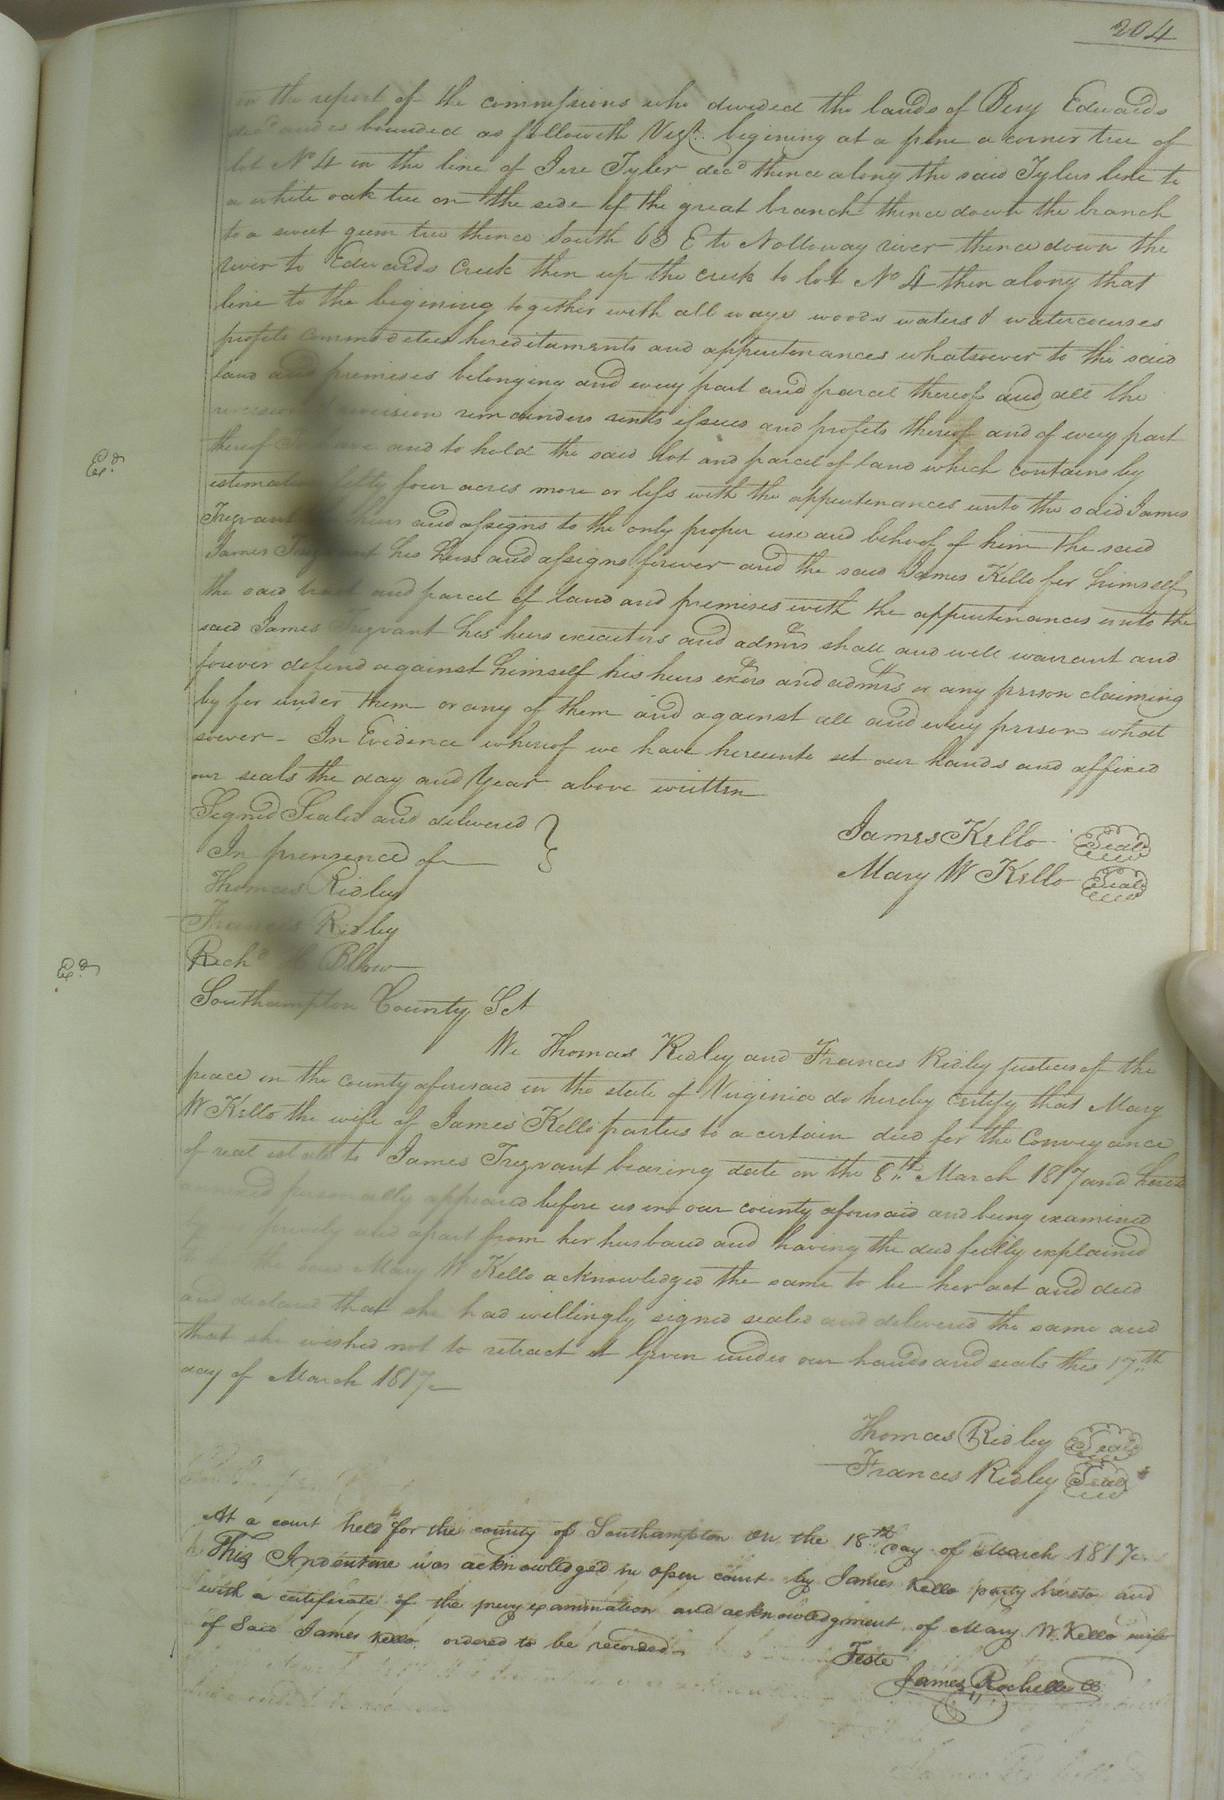 204
in the report of the commissions who divided the lands of Benj Edwards
decd and is bounded as followeth Vizt. begining at a pine a corner tree of
lot No 4 in the line of Jere Tyler decd thence along the said Tylers line to
a white oak tree on the side of the great branch thence down the branch
to a sweet gum tree thence South 63 E to Nottoway river thence down the
river to Edwards Creek then up the creek to lot No 4 then along that
line to the begining together with all ways woods waters & watercourses
profits commodeties hereditaments and appurtenances whatsoever to the said
land and premeses belonging and every part and parcel thereof and all the
revision remainders rents issues and profits thereof and of every part
thereof To have and to hold the said lot and parcel of land which contains by
estimation fifty four acres more or less with the appurtenances unto the said James
Trezvant heirs and assigns to the only proper use and behoof of him the said
James Trezvant his heirs and assigns forever and the said James Kello for himself
the said tract and parcel of land and premises with the appurtenances unto the
said James Trezvant his heirs executors and admrs shall and will warrant and
forever defend against himself his heirs exers and admrs or any person claiming
by for under them or any of them and against all and every person what
soever - In Evidence whereof we have hereunto set our hands and affixed
our seals the day and Year above written
Signed Sealed and delivered
In prensence of
James Kello Seal
Mary W Kello Seal
Thomas Ridley
Frances Ridley
Richd H Blow
Southampton County Sct
We Thomas Ridley and Frances Ridley justices of the
peace in the county aforesaid in the state of Virginia do hereby Certify that Mary
W Kello the wife of James Kello parties to a certain deed for the Conveyance
of real estate to James Trezvant bearing date on the 8th March 1817 and hereto
annexed personally appeared before us in our county aforesaid and being examined
by us privily and apart from her husband and having the deed fully explained
to her the said Mary W Kello acknowledged the same to be her act and deed
and declared that she had willingly signed sealed and delivered the same and
that she wished not to retract it Given under our hands and seals this 17th
day of March 1817
Thomas Ridley Seal
Frances Ridley Seal
At a court held for the county of Southampton on the 18th day of March 1817
This Indenture was acknowledged in open court by James Kello party hereto and
with a certificate of the privy examination and acknowledgment of Mary W. Kello wife
of Said James Kello ordered to be recorded
Teste
James Rochelle CC